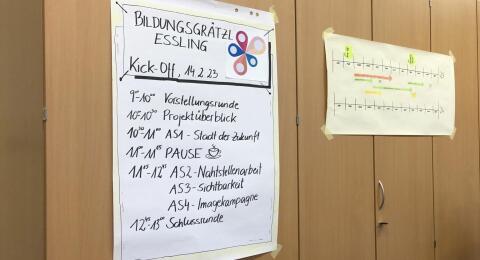 BILDUNGSGRÄTZL
ESSLING
Kick-Off, 14.2.23
9-10⁰⁰ Vorstellungsrunde
10-10³⁰ Projektüberblick
10³⁰-11⁰⁰ AS1 - Stadt der Zukunft
11⁰⁰-11¹⁵ PAUSE
11¹⁵-12⁴⁵ AS2-Nahtstellenarbeit
AS3-Sichtbarkeit
AS4-Imagekampagne
12⁴⁵-13⁰⁰ Schlussrunde